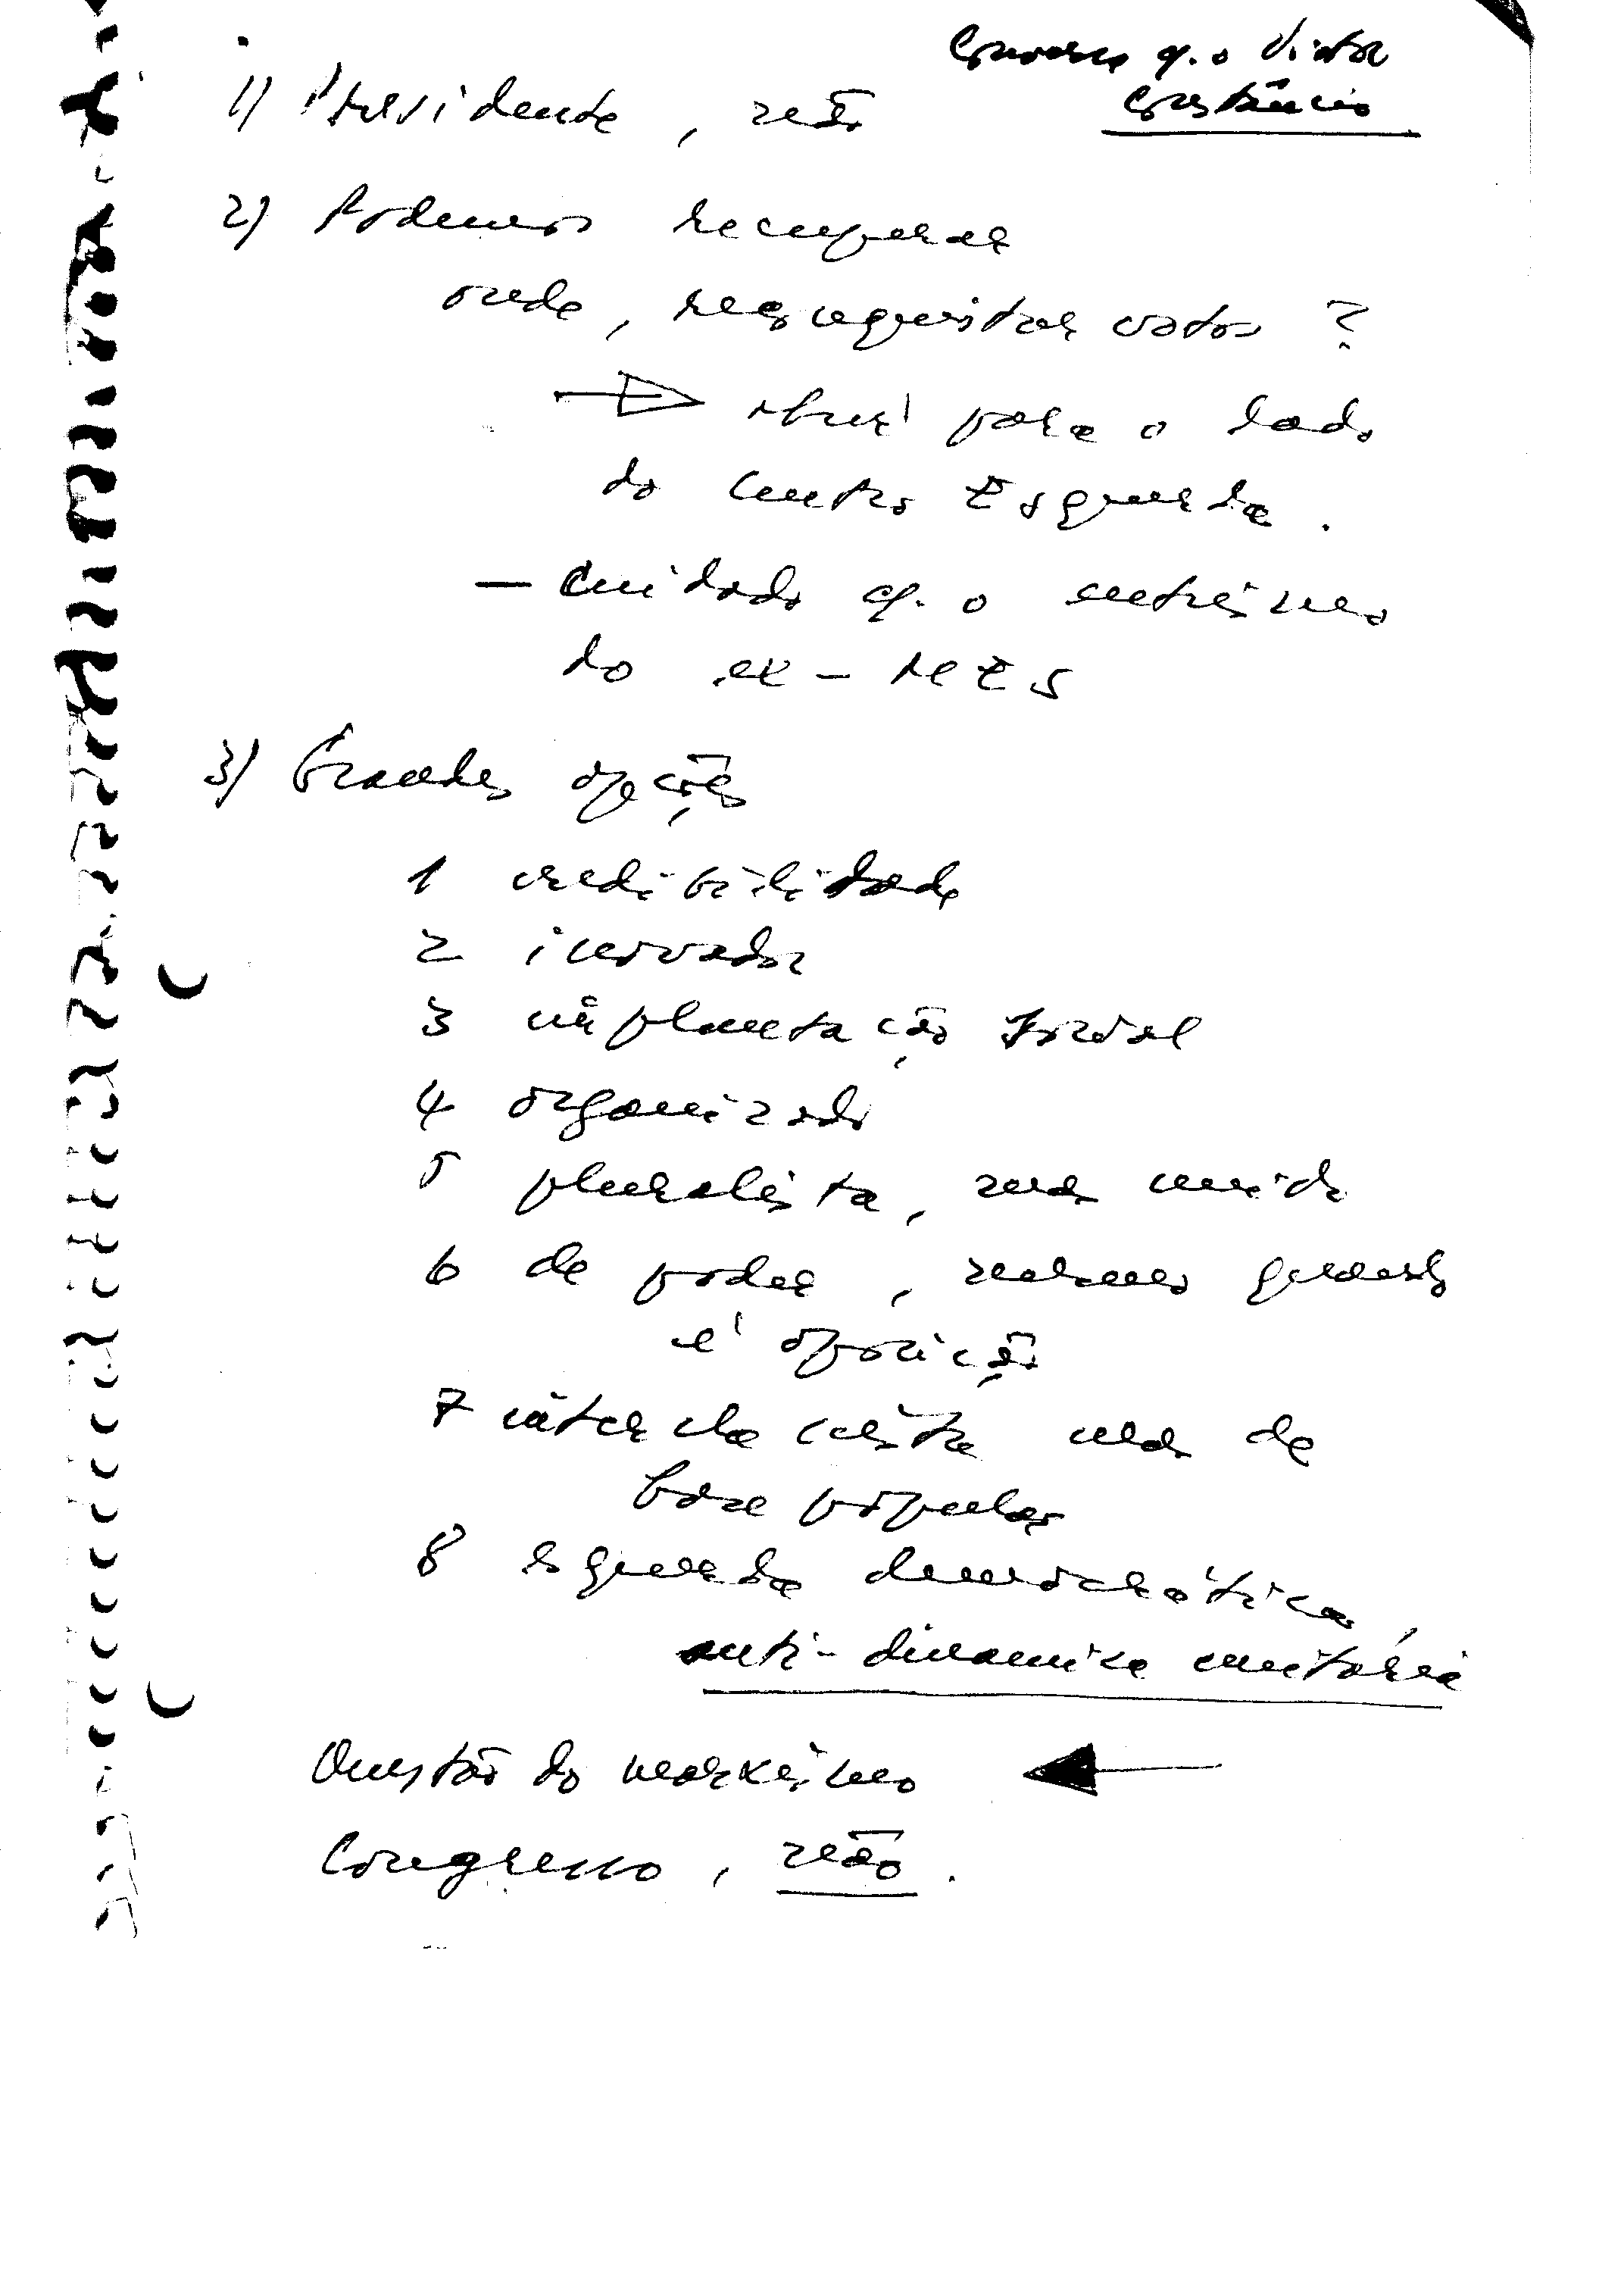 Conversa c/. o Victor
Constâncio
1) Presidente, não
2) Podemos recuperar
onde, reconquistar votos?
para o lado
do Centro Esquerda.
— Cuidado c/. o entrismo
do ex-MES
3) Grandes opções
1 credibilidade
2 inovador
3 implantação social
4 organizado
5 pluralista, mas unido
6 de poder, mesmo quando
é oposição
7 interclassista mas de
base popular
8 esquerda democrática,
anti-dinamica unitária
Questão do marxismo
Congresso, não.